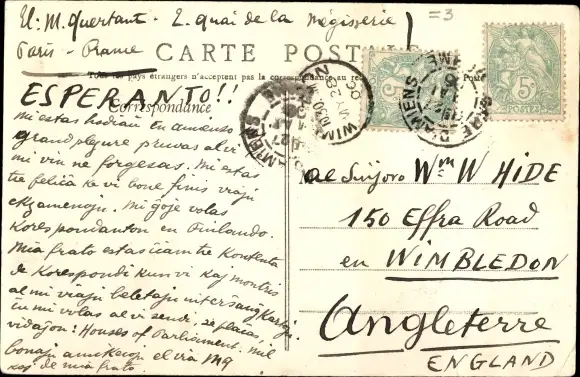 El: M. Quertant - 2. quai de la Mégisserie
Paris - France
=3
CARTE POSTALE
Tous les pays étrangers n'acceptent pas la correspondance au
Correspondance
ESPERANTO!!
mi estas hodiaŭ en amenso
grand plezure pruvas al vi
mi vin ne forgesas. Mi estas
tre feliĉa ke vi bone finis viajn
ekzamenojn. Mi ĝoje volas
korespondanton en Finlando.
Mia frato estas ĉiam tre kontenta
de korespondi kun vi kaj montris
al mi viajn beletajn
mi volas al vi sendi, se plaĉas,
vidaĵon: Houses of Parliament. mil
bonajn amikaĵojn el via MQ
kaj de mia frato
AMIENS
WIM
MY 28
06
AMIENS
5c
Al Sinjoro Wm W HIDE
150 Effra Road
en WIMBLEDON
Angleterre
ENGLAND